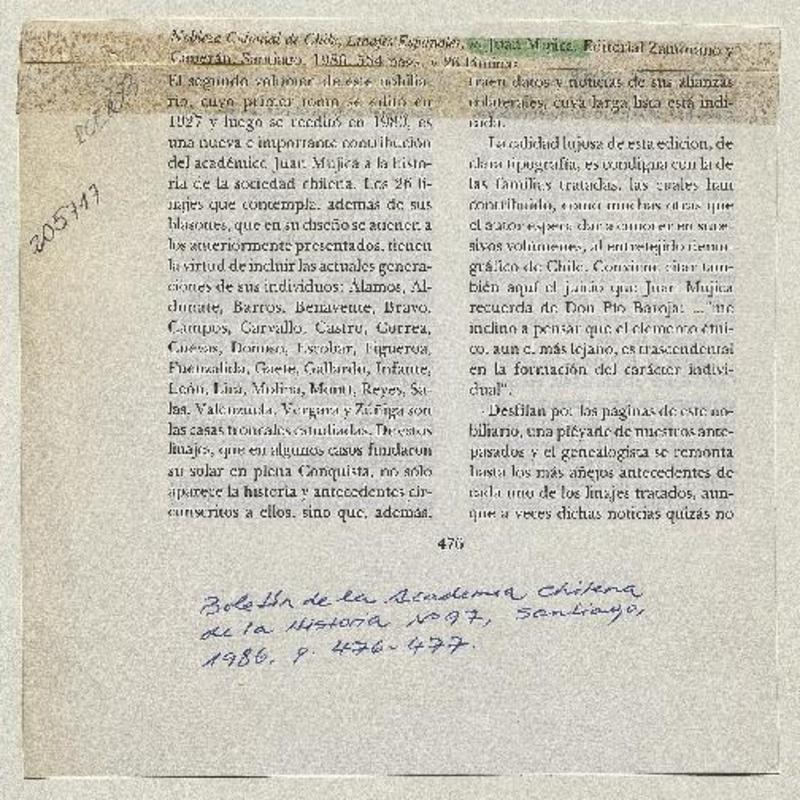 Nobleza Colonial de Chile, Linajes Españoles, Juan Mujica, Editorial Zamorano y
Caperán, Santiago, 1986, 554 págs. y 26 láminas
El segundo volumen de este nobilia-
rio, cuyo primer tomo se editó en
1927 y luego se reeditó en es
una nueva e importante contribución
del académico Juan Mujica a la histo-
ria de la sociedad chilena. Los 26 li-
najes que contempla, además de sus
blasones, que en su diseño se atienen a
los anteriormente presentados, tienen
la virtud de incluir las actuales genera-
ciones de sus individuos: Álamos, Al-
dunate, Barros, Benavente, Bravo,
Campos, Carvallo, Castro, Correa,
Cuevas, Donoso, Escobar, Figueroa,
Fuenzalida, Gaete, Gallardo, Infante,
León, Lira, Molina, Montt, Reyes, Sa-
las, Valenzuela, Vergara y Zúñiga son
las casas troncales estudiadas. De estos
linajes, que en algunos casos fundaron
su solar en plena Conquista, no sólo
aparece la historia y antecedentes cir-
cunscritos a ellos, sino que, además,
traen datos y noticias de sus alianzas
colaterales, cuya larga lista está indi-
cada.
La calidad lujosa de esta edición, de
clara tipografía, es condigna con la de
las familias tratadas, las cuales han
contribuido, como muchas otras que
el autor espera dar a conocer en suce-
sivos volúmenes, al entretejido demo-
gráfico de Chile. Conviene citar tam-
bién aquí el juicio que Juan Mujica
recuerda de Don Pío Baroja: ... "me
inclino a pensar que el elemento étni-
co, aun el más lejano, es trascendental
en la formación del carácter indivi-
dual".
Desfilan por las páginas de este no-
biliario, una pléyade de nuestros ante-
pasados y el genealogista se remonta
hasta los más añejos antecedentes de
cada uno de los linajes tratados, aun-
que a veces dichas noticias quizás no
476
205717
Boletín de la Academia Chilena
de la Historia Nº 97, Santiago,
1986. p. 476-477.